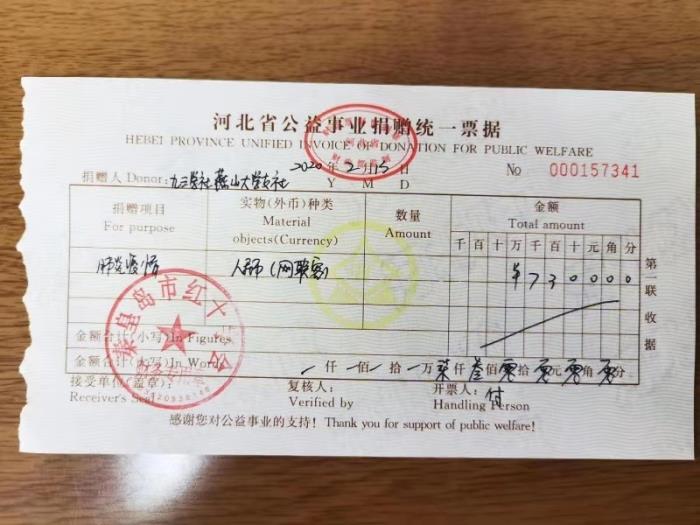 河北省公益事业捐赠统一票据
HEBEI PROVINCE UNIFIED INVOICE OF DONATION FOR PUBLIC WELFARE
捐赠人 Donor: 九三学社燕山大学支社 2020年2月15日 No 000157341
Y M D
捐赠项目 实物(外币)种类 数量 金额
For purpose Material objects(Currency) Amount Total amount
千 百 十 万 千 百 十 元 角 分
肺炎疫情 人民币 ¥ 7 3 0 0 0 0
第一联 收据
金额合计(小写)In Figures
金额合计(大写)In Words 仟 佰 拾 万 柒 仟 叁 佰 零 拾 零 元 零 角 零 分
接受单位(盖章): 复核人: 开票人: 付
Receiver's Seal Verified by Handling Person
感谢您对公益事业的支持! Thank you for support of public welfare!
秦皇岛市红十字会